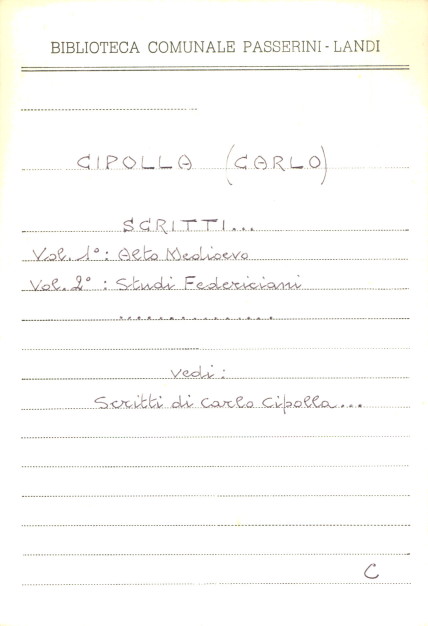 BIBLIOTECA COMUNALE PASSERINI - LANDI
CIPOLLA (CARLO)
SCRITTI...
Vol. 1° : Alto Medioevo
Vol. 2° : Studi Federiciani
...............
vedi :
Scritti di Carlo Cipolla...
C